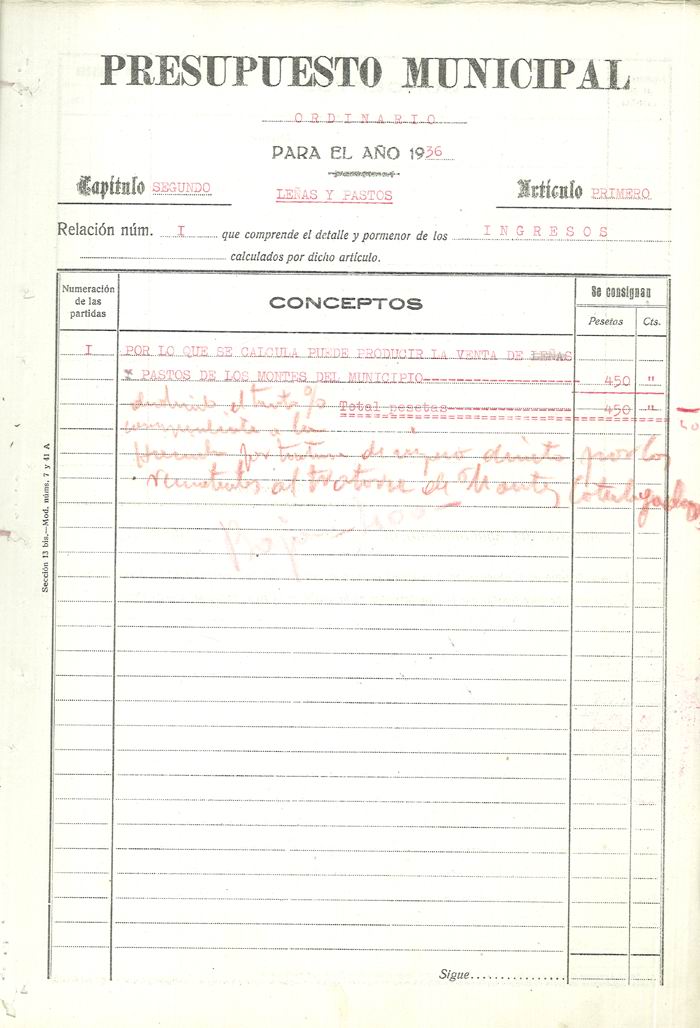 PRESUPUESTO MUNICIPAL
ORDINARIO
PARA EL AÑO 1936
Capítulo SEGUNDO LEÑAS Y PASTOS Artículo PRIMERO
Relación núm. I que comprende el detalle y pormenor de los INGRESOS
calculados por dicho artículo.
Numeración de las partidas
CONCEPTOS
Se consignan
Pesetas Cts.
I POR LO QUE SE CALCULA PUEDE PRODUCIR LA VENTA DE LEÑAS
Y PASTOS DE LOS MONTES DEL MUNICIPIO 450 "
deducido el tanto %
Total pesetas 450 "
a la
de ingreso directo por los
rematantes al de Montes
Sección 13 bis.—Mod. núms. 7 y 41 A
Sigue